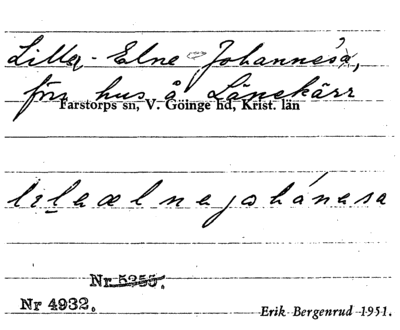 Lilla-Elne Johannesa,
förr hus å Länekärr
Farstorps sn, V. Göinge hd, Krist. län
Nr 5255.
Nr 4932.
Erik Bergenrud 1951.